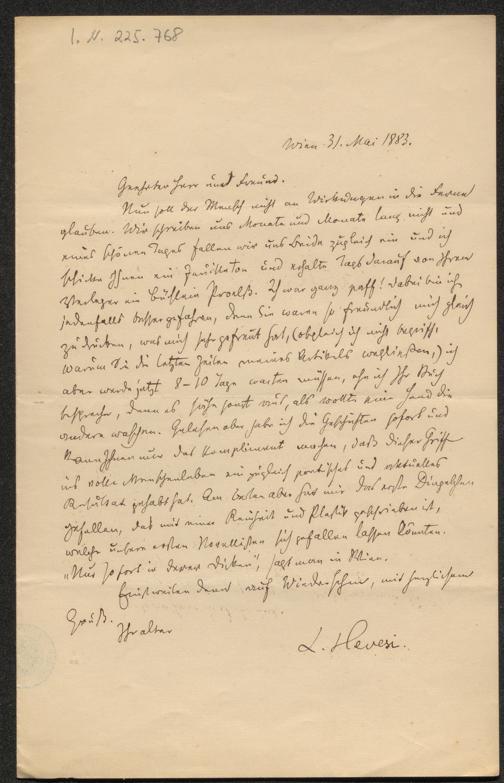 I. N. 225.768
Wien 31. Mai 1883.
Geehrter Herr und Freund.
Nun soll der Mensch nicht an Wirkungen in die Ferne
glauben. Wir schreiben uns Monate und Monate lang nicht und
eines schönen Tages fallen wir uns Beide zugleich ein und ich
schicke Ihnen ein Feuilleton und erhalte Tags darauf von Ihrem
Verleger ein Büchlein Proelß. Ich war ganz paff! Dabei bin ich
jedenfalls besser gefahren, denn Sie waren so freundlich mich gleich
zu drucken, was mich sehr gefreut hat, (obgleich ich nicht begriff,
warum Sie die letzten Zeilen meines Artikels wegließen,) ich
aber werde jetzt 8–10 Tage warten müssen, ehe ich Ihr Buch
bespreche, denn es sähe sonst aus, als wollte eine Hand die
andere waschen. Gelesen aber habe ich die Geschichten sofort und
kann Ihnen nur das Kompliment machen, daß dieser Griff
ins volle Menschenleben ein zugleich poetisches und aktuelles
Resultat gehabt hat. Am besten aber hat mir das erste
gefallen, das mit einer Reinheit und Plastik geschrieben ist,
welche unsere ersten Novellisten sich gefallen lassen könnten.
"Nur so fort in derer Dicken", sagt man in Wien.
Einstweilen denn auf Wiedersehen, mit herzlichem
Gruß.
Ihr alter
L. Hevesi.